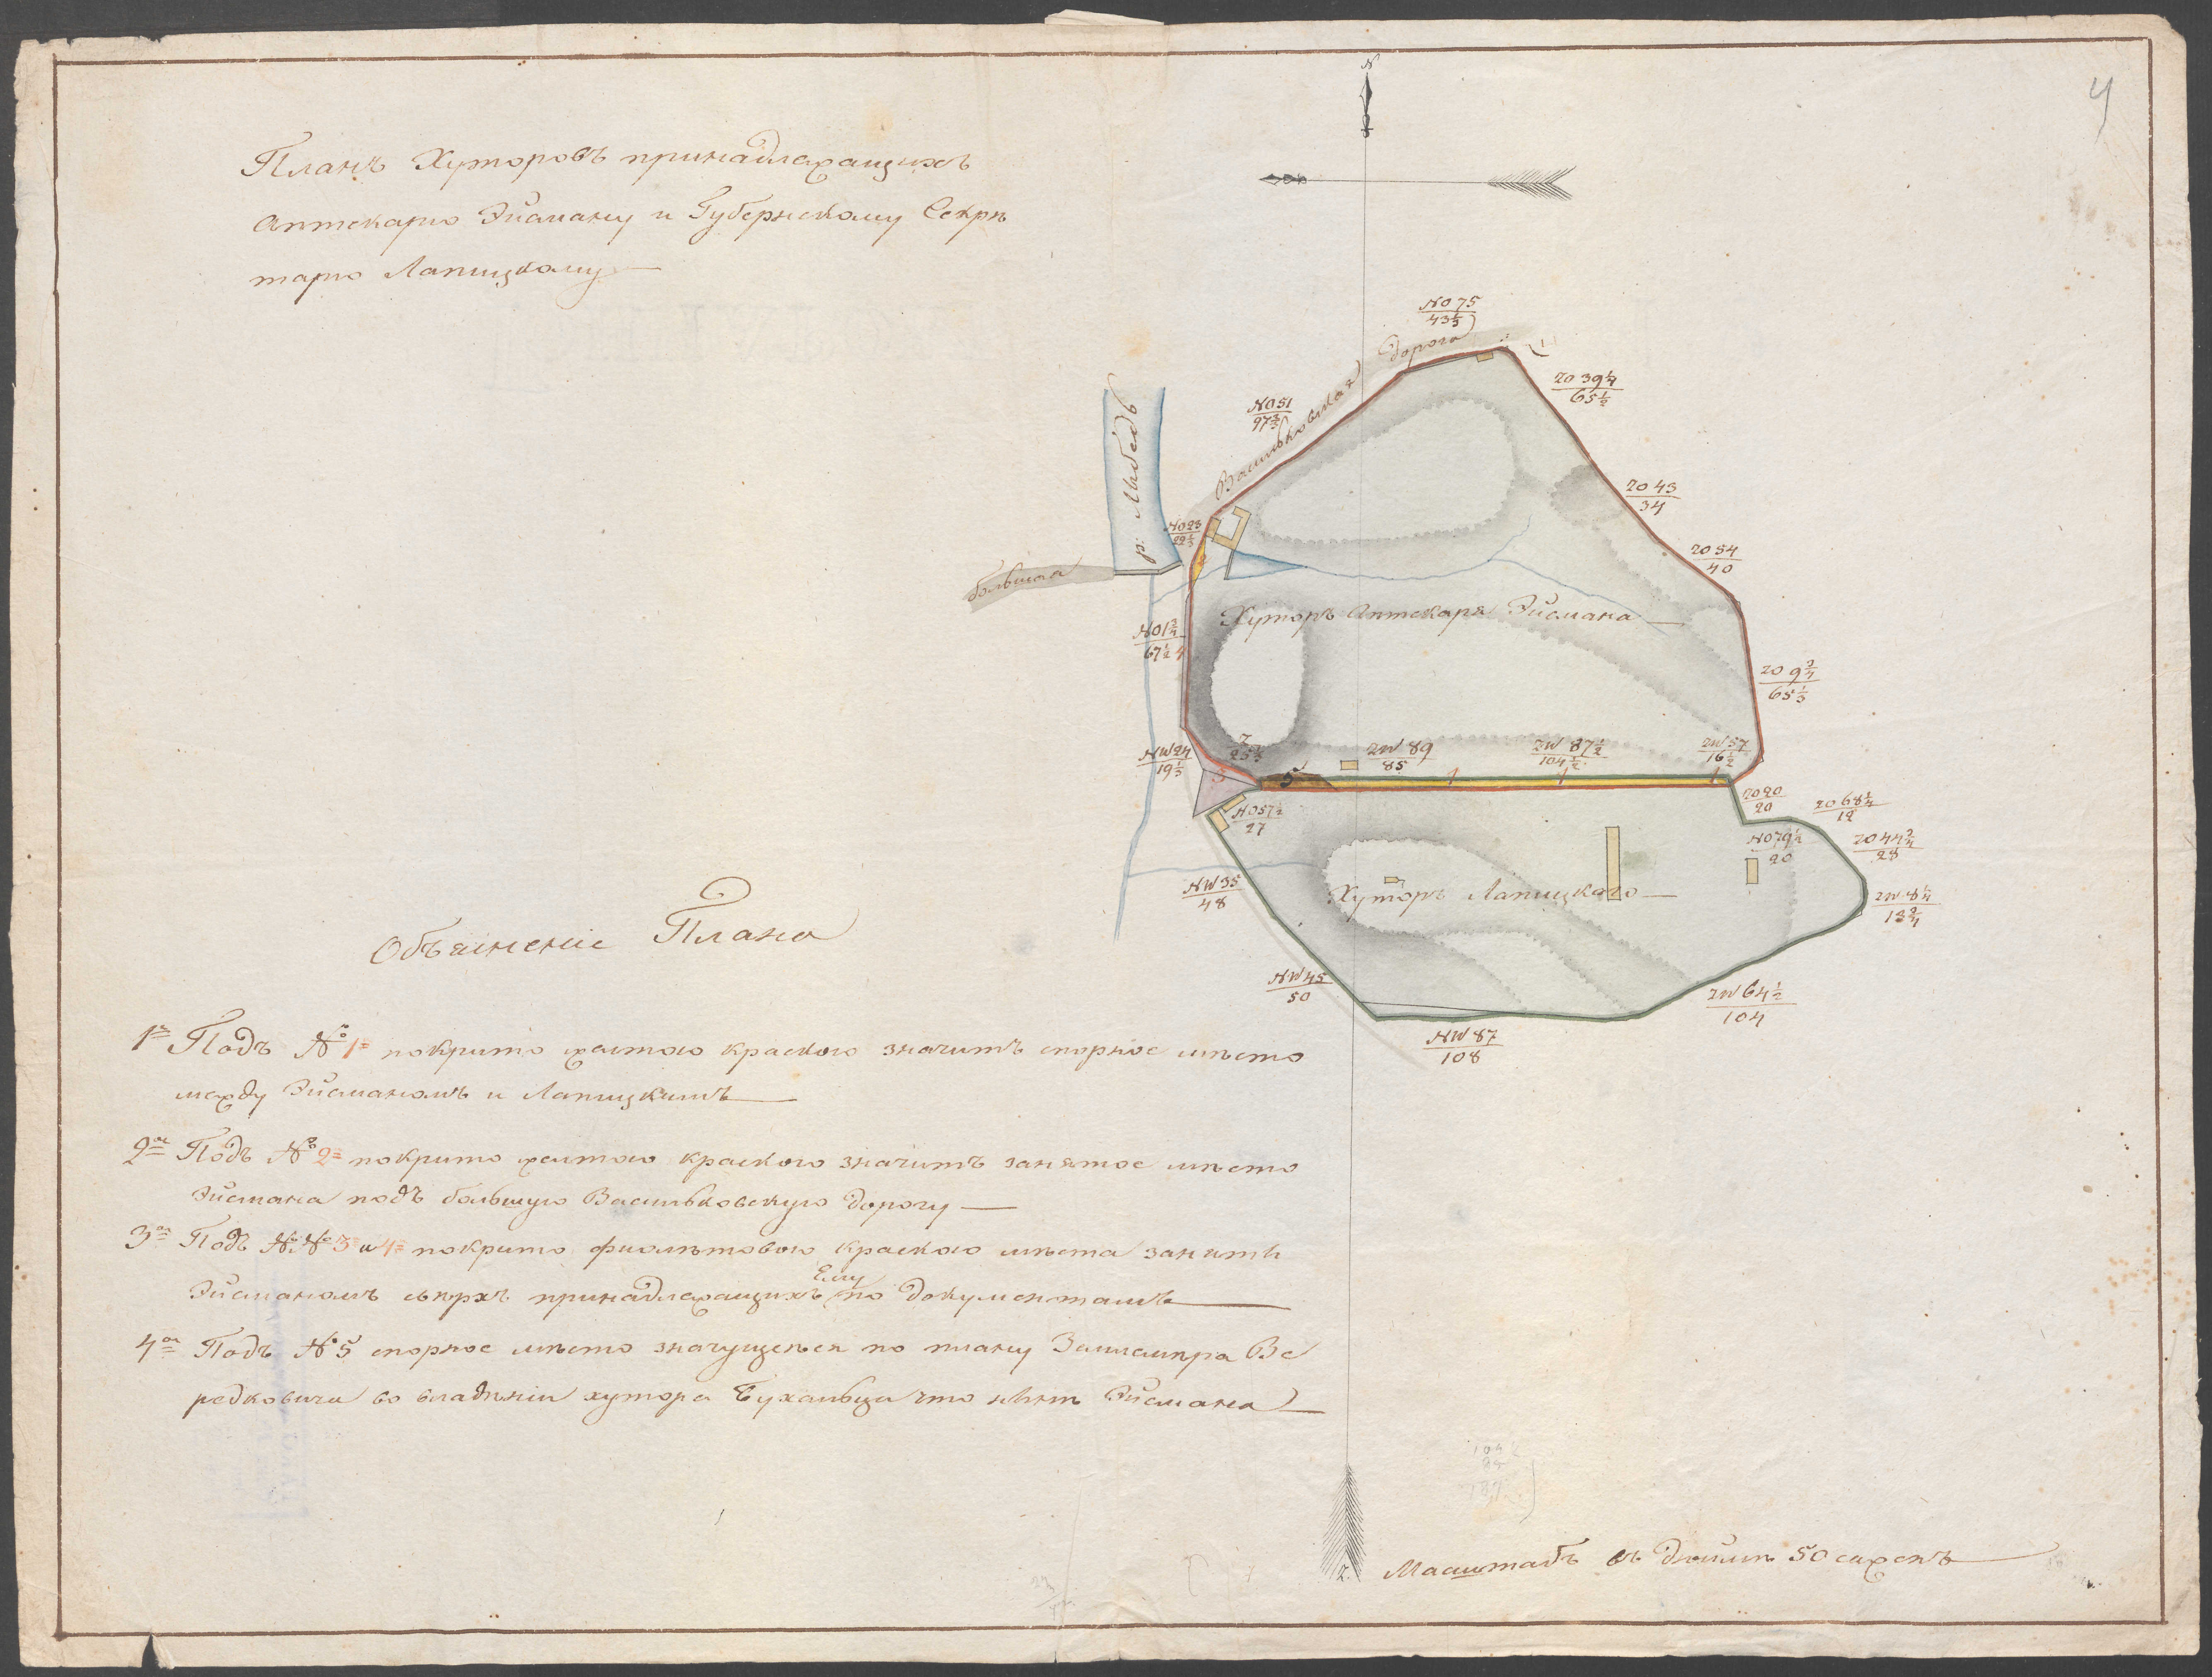 4
Планъ Хуторовъ принадлежащихъ
Аптекарю Эйсману и Губернскому Секрѣ
тарю Лапицкому
N
NO 75
43 1/3
Дорога
Васильковская
NO 51
97 2/3
ZO 39 1/4
65 1/2
ZO 43
34
ZO 54
40
р: Либедь
NO 23
22 1/3
2
большая
Хуторъ Аптекаря Эйсмана
NO 1 3/4
67 1/2
4
ZO 9 3/4
65 1/3
NW 24
19 1/3
Z
25 1/3
ZW 89
85
ZW 87 1/2
104 1/2
ZW 57
16 1/2
3
5
1
1
1
NO 57 1/2
27
ZO 20
20
ZO 68 1/4
12
NO 79 1/4
20
ZO 44 3/4
28
NW 35
48
Хуторъ Лапицкаго
ZW 8 1/4
13 3/4
NW 45
50
ZW 64 1/2
104
NW 87
108
Объяснение Плана
1е Подъ № 1м покрито желтою краскою значитъ спорное мѣсто
между Эйсманомъ и Лапицкимъ
2ое Подъ № 2м покрито желтою краскою значитъ занятое мѣсто
Эйсмана подъ большую Васильковскую дорогу
3ое Подъ №№ 3 и 4м покрито фиолѣтовою краскою мѣста заняти
Эйсманомъ свѣрхъ принадлежащихъ Ему по документамъ
4ое Подъ № 5 спорное мѣсто значущеѣся по плану Землемѣра Бе
редковича во владѣніи хутора Бухальца что нынѣ Эйсмана
104
85
187
Z.
Масштабъ въ дюймѣ 50 саженъ